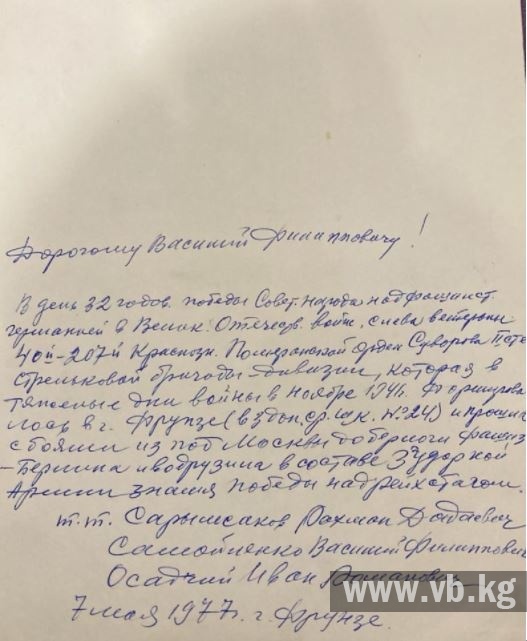 Дорогому Василий Филипповичу!
В день 32 годов. победы Совет. народа над фашист.
германией в Велик. Отечеств. войне, слева ветераны
40й-207й Краснозн. Померанской Орден Суворова
стрельковой бригады-дивизии, которая в
тяжелые дни войны в ноябре 1941г. Формирова
лось в г. Фрунзе (в здан. ср. шк. №24) и прошли
с боями из под Москвы до берлоги фашиз
-Берлина и водрузила в составе 3 ударной
Армии знамя победы над рейхстагом.
т.т. Сарымсаков Рахман Дадаевич
Самойленко Василий Филиппович
Осадчий Иван
7 мая 1977г. г. Фрунзе.
www.vb.kg